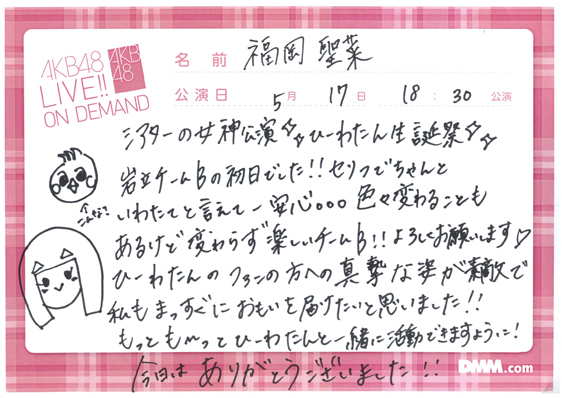 AKB48 LIVE!! ON DEMAND
AKB48
名前 福岡 聖菜
公演日 5月 17日 18:30 公演
シアターの女神公演☆☆ひーわたん生誕祭☆☆
岩立チームBの初日でした!!セリフでちゃんと
いわたてと言えて一安心○○○色々変わることも
あるけど変わらず楽しいチームB!!よろしくお願いします♡
ひーわたんのファンの方への真摯な姿が素敵で
私もまっすぐにおもいを届けたいと思いました!!
もっともーっとひーわたんと一緒に活動できますように!
今日は ありがとうございました!!
DMM.com